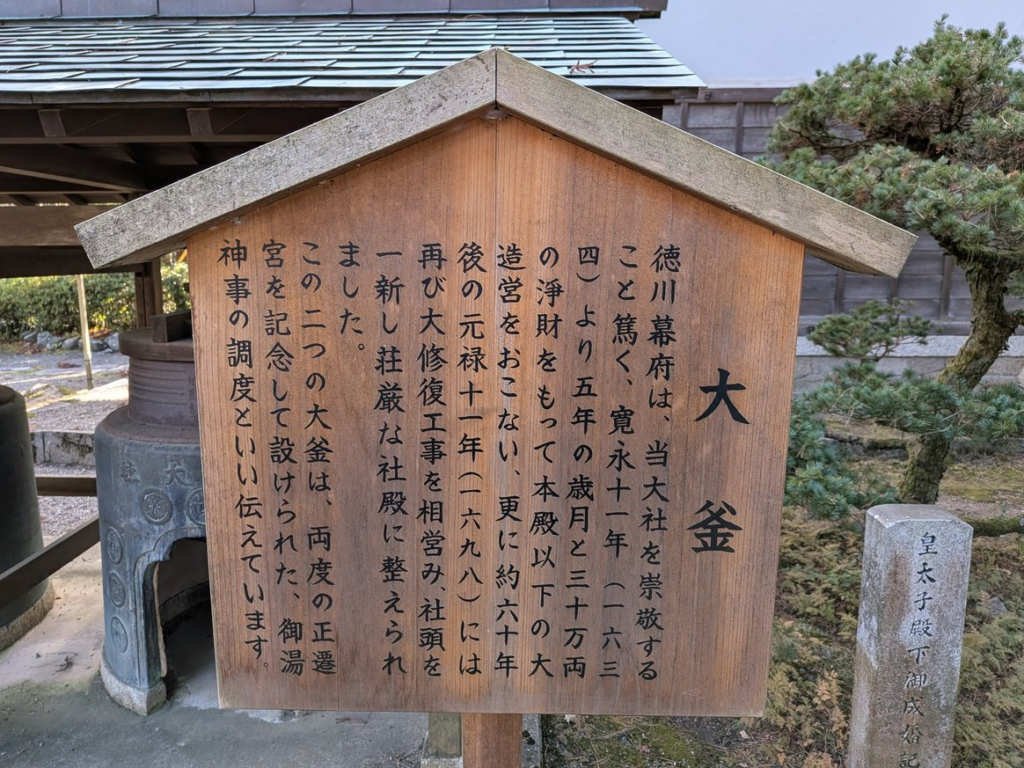 大釜
徳川幕府は、当大社を崇敬する
こと篤く、寛永十一年（一六三
四）より五年の歳月と三十万両
の浄財をもって本殿以下の大
造営をおこない、更に約六十年
後の元禄十一年（一六九八）には
再び大修復工事を相営み、社頭を
一新し荘厳な社殿に整えられ
ました。
この二つの大釜は、両度の正遷
宮を記念して設けられた、御湯
神事の調度といい伝えています。
皇太子殿下御成婚記
大社